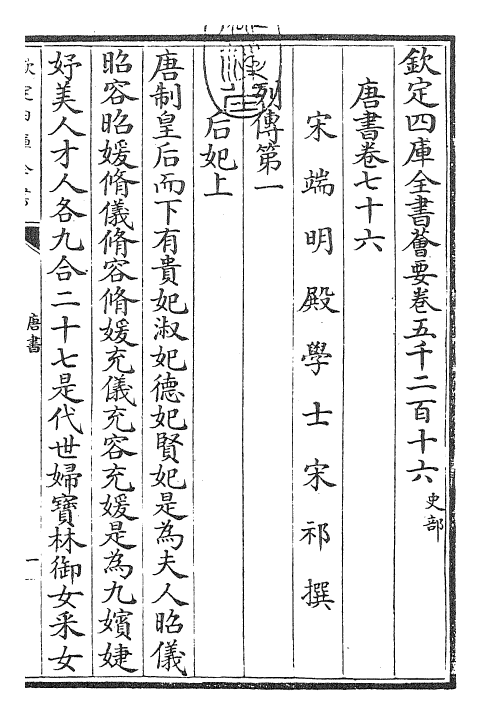 欽定四庫全書薈要卷五千二百十六 史部
唐書卷七十六
宋端明殿學士宋祁撰
列傳第一
后妃上
唐制皇后而下有貴妃淑妃德妃賢妃是為夫人昭儀
昭容昭媛脩儀脩容脩媛充儀充容充媛是為九嬪婕
妤美人才人各九合二十七是代世婦寶林御女采女
欽定四庫全書
唐書
一